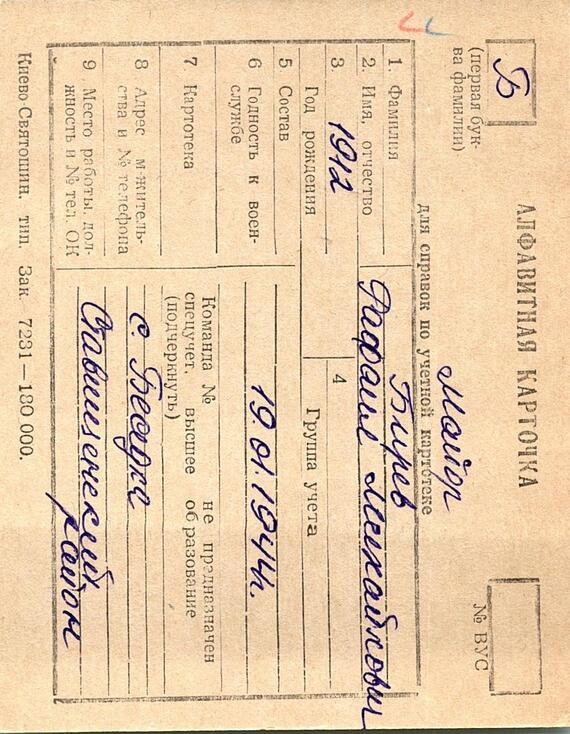 АЛФАВИТНАЯ КАРТОЧКА
Б
(первая бук-
ва фамилии)
Майор
№ ВУС
для справок по учетной картотеке
1. Фамилия Бирев
2. Имя, отчество Рафаил Михайлович
3. Год рождения 1912
4 Группа учета
5 Состав
6 Годность к воен-
ной службе 19.01.1944г.
7 Картотека
Команда № не предназначен
спецучет. высшее образование
(подчеркнуть)
8 Адрес м-житель-
ства и № телефона с. Беседка
9 Место работы, дол-
жность и № тел. ОК Ставищенский
район
Киево Святошин. тип. Зак 7231—180 000.